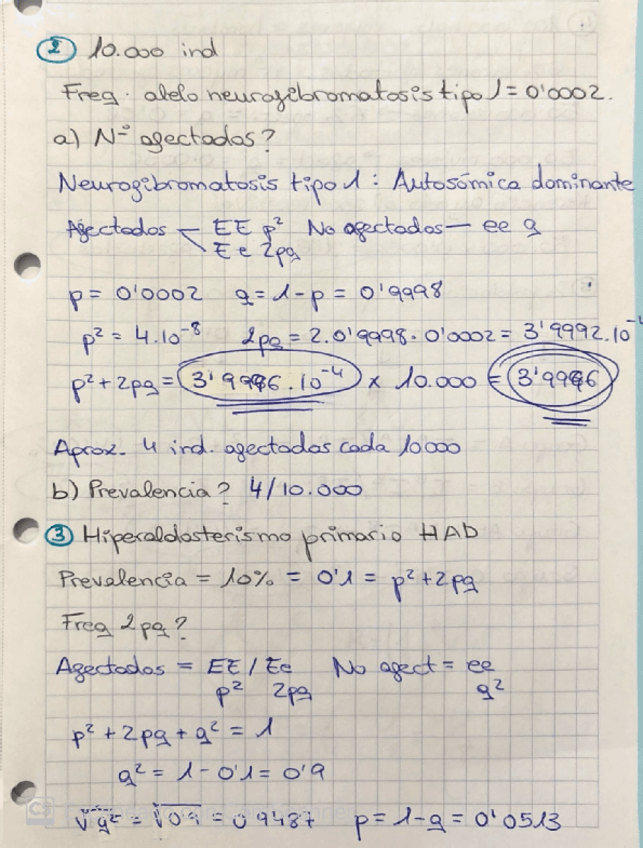 2 10.000 ind
Freq. alelo neurofibromatosis tipo 1 = 0'0002.
a) Nº afectados?
Neurofibromatosis tipo 1 : Autosómica dominante
Afectados EE p² No afectados — ee q
Ee 2pq
p = 0'0002 q = 1 - p = 0'9998
p² = 4.10⁻⁸ 2pq = 2.0'9998.0'0002 = 3'9992.10⁻⁴
p² + 2pq = 3'9996.10⁻⁴ x 10.000 = 3'9996
Aprox. 4 ind. afectados cada 10000
b) Prevalencia? 4/10.000
3 Hiperaldosterismo primario HAD
Prevalencia = 10% = 0'1 = p² + 2pq
Freq 2pq?
Afectados = EE / Ee No afect = ee
p² 2pq q²
p² + 2pq + q² = 1
q² = 1 - 0'1 = 0'9
√q² = √0'9 = 0'9487 p = 1 - q = 0'0513